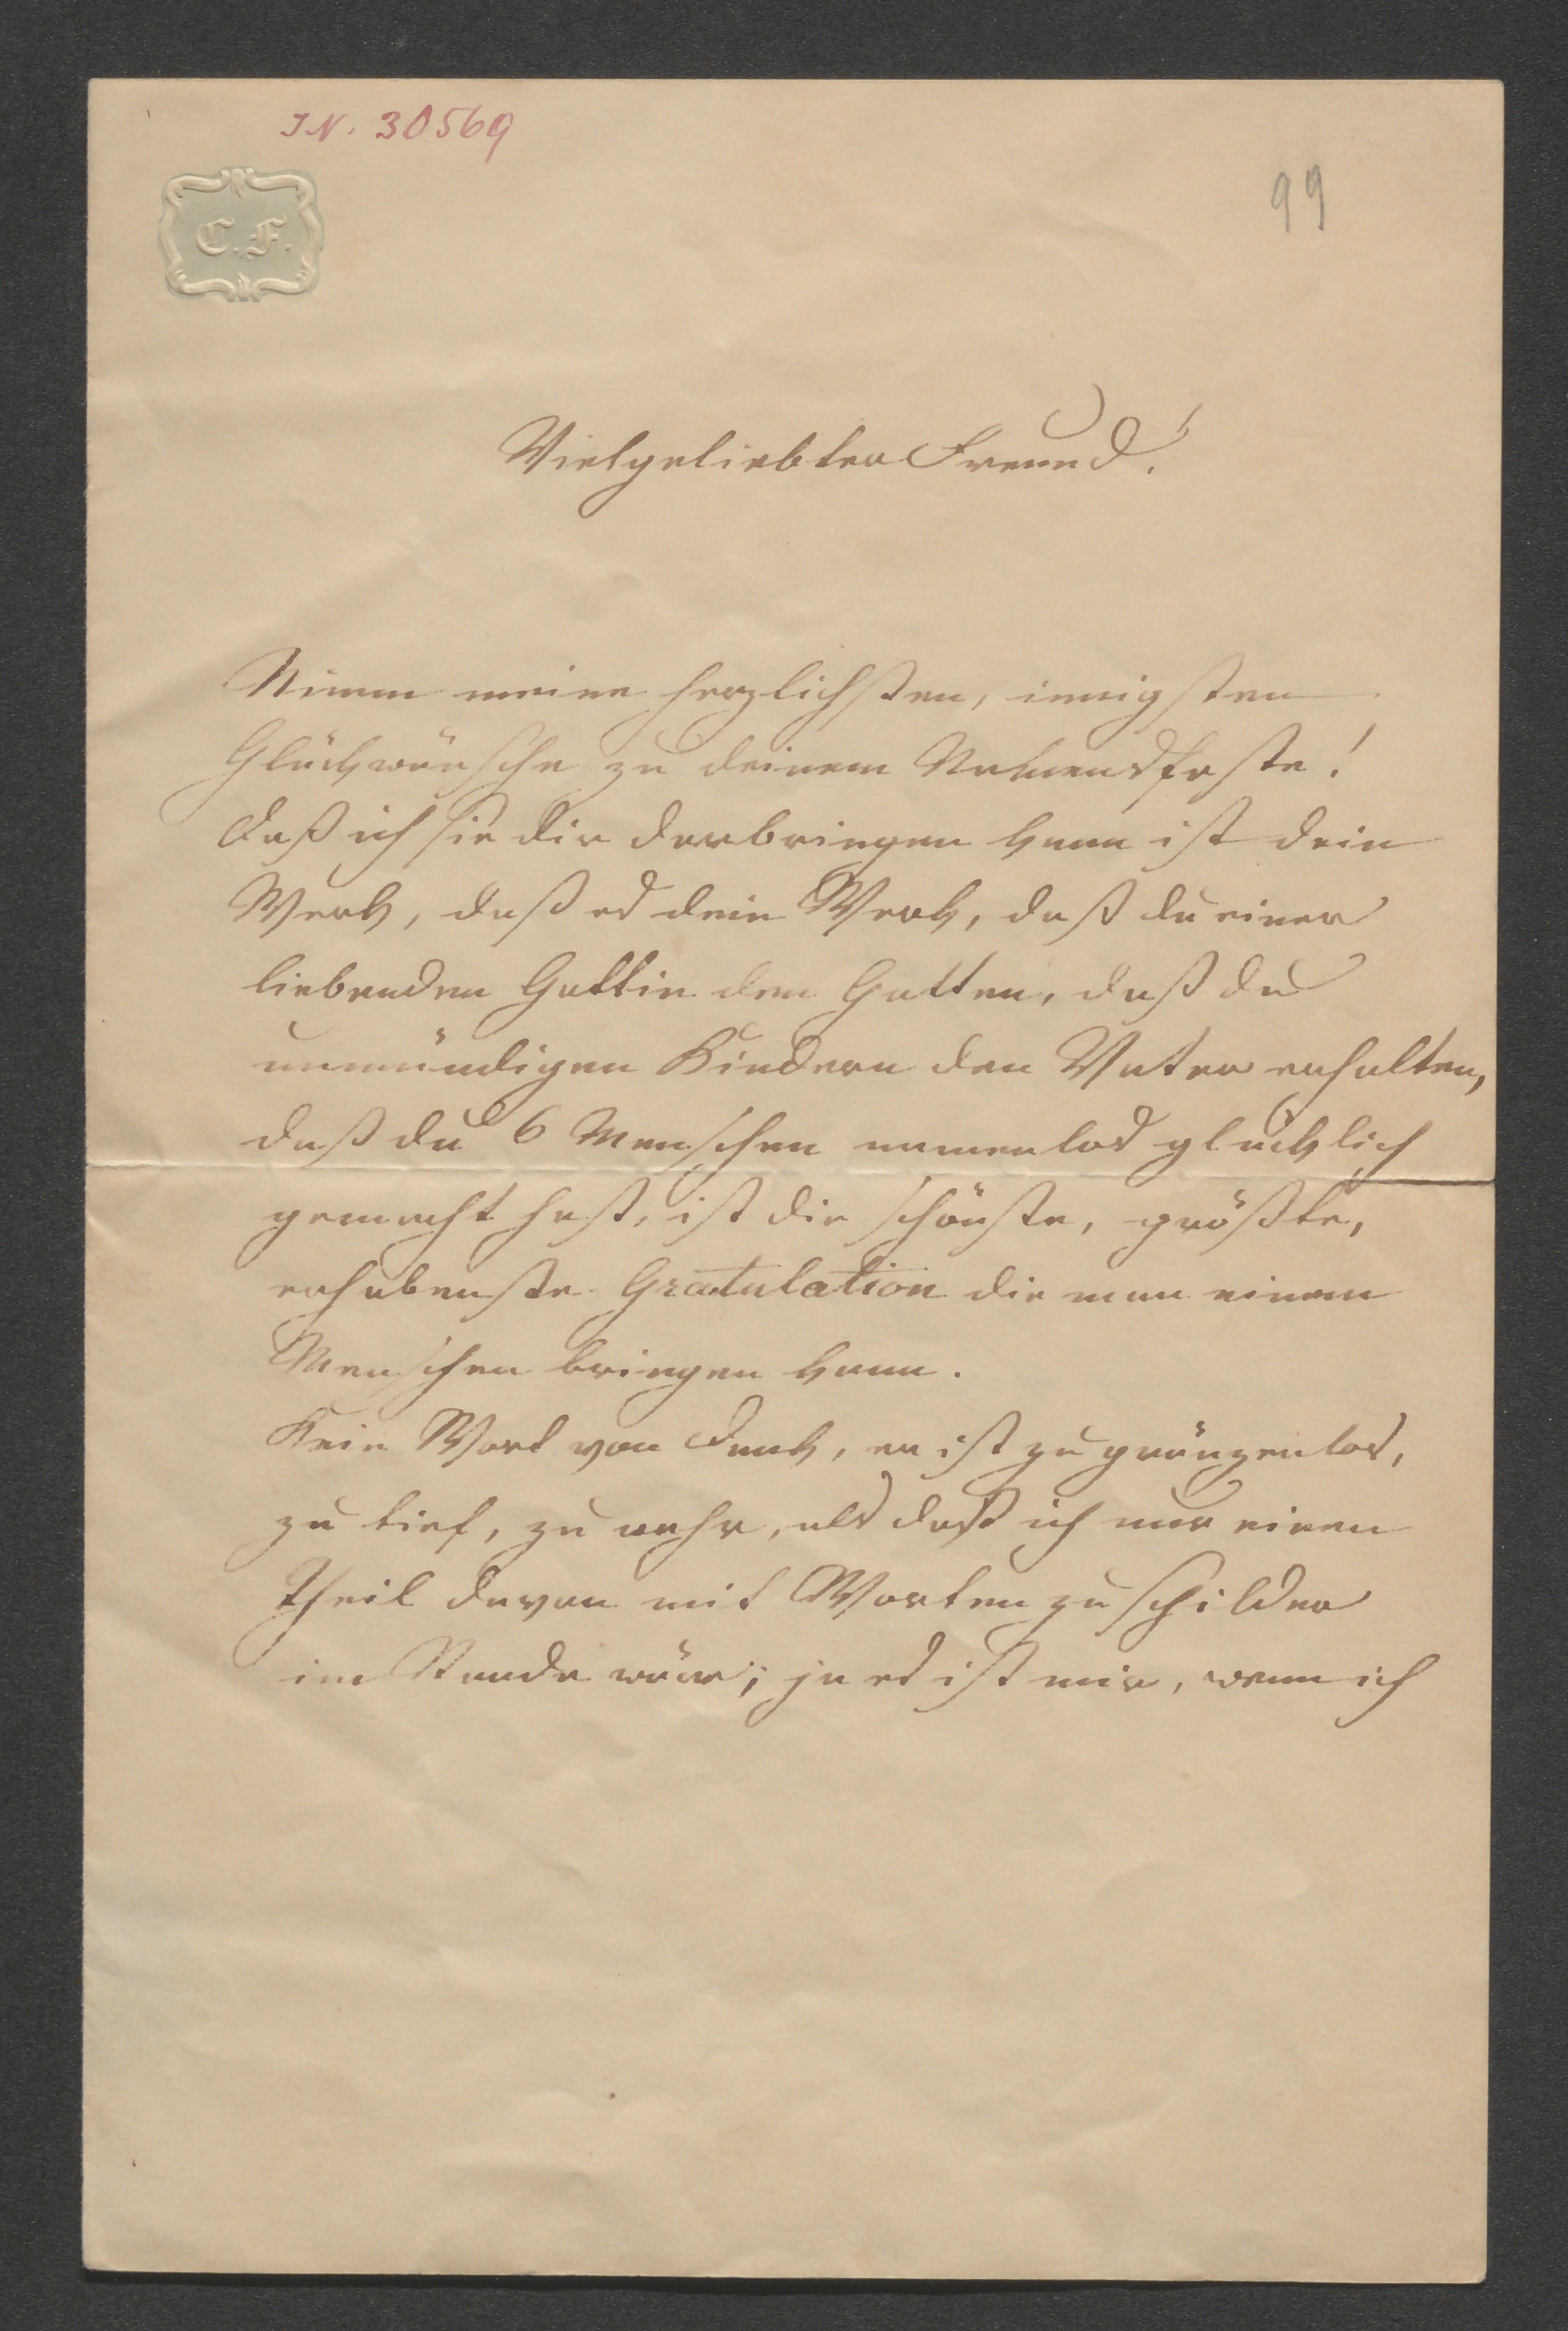 IN. 30569
99
C. F.
Vielgeliebter Freund!
Nimm meine herzlichsten, innigsten
Glückwünsche zu deinem Namensfeste!
Daß ich sie dir darbringen kann ist dein
Werk, daß es dein Werk, daß du einer
liebenden Gattin den Gatten, daß du
unmündigen Kindern den Vater erhalten,
daß du 6 Menschen namenlos glücklich
gemacht hast, ist die schönste, größte,
erhabenste Gratulation die man einem
Menschen bringen kann.
Kein Wort von Dank, er ist zu gränzenlos,
zu tief, zu wahr, als daß ich nur einen
Theil davon mit Worten zu schildern
im Stande wäre; ja es ist mir, wenn ich